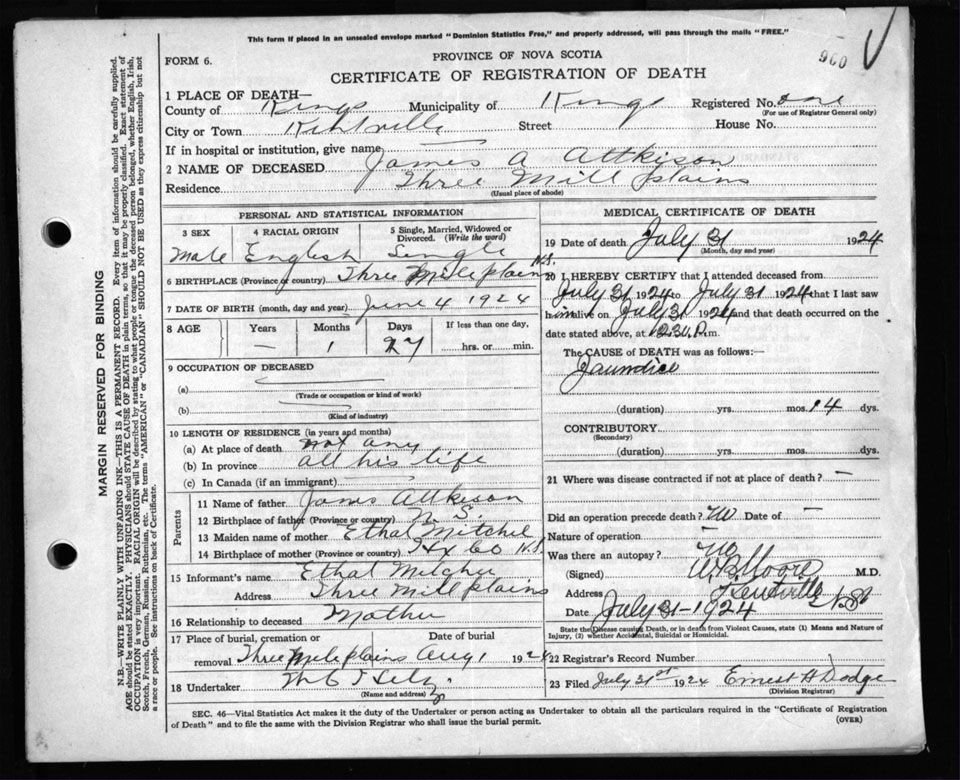 This form if placed in an unsealed envelope marked "Dominion Statistics Free," and properly addressed, will pass through the mails "FREE."
960
FORM 6.
PROVINCE OF NOVA SCOTIA
CERTIFICATE OF REGISTRATION OF DEATH
1 PLACE OF DEATH—
County of Kings Municipality of Kings Registered No.
(For use of Registrar General only)
City or Town Kentville Street House No.
If in hospital or institution, give name
2 NAME OF DECEASED James A Attkison
Residence Three Mill plains
(Usual place of abode)
PERSONAL AND STATISTICAL INFORMATION
3 SEX 4 RACIAL ORIGIN 5 Single, Married, Widowed or Divorced. (Write the word)
Male English Single
6 BIRTHPLACE (Province or country) Three Mile plain N.S.
7 DATE OF BIRTH (month, day and year) June 4 1924
8 AGE Years Months Days If less than one day,
— 1 27 hrs. or min.
9 OCCUPATION OF DECEASED
(a)
(Trade or occupation or kind of work)
(b)
(Kind of industry)
10 LENGTH OF RESIDENCE (in years and months)
(a) At place of death not any
(b) In province all his life
(c) In Canada (if an immigrant)
Parents
11 Name of father James Attkison
12 Birthplace of father (Province or country) N.S.
13 Maiden name of mother Ethal Mitchel
14 Birthplace of mother (Province or country) Hx Co N.S.
15 Informant's name Ethal
Address Three Mill plains
16 Relationship to deceased Mother
17 Place of burial, cremation or removal Date of burial
Three Mile plains Aug 1 1924
18 Undertaker
(Name and address)
MEDICAL CERTIFICATE OF DEATH
19 Date of death July 31 1924
(Month, day and year)
20 I HEREBY CERTIFY that I attended deceased from
July 31 1924 to July 31 1924 that I last saw
him alive on July 31 1924 and that death occurred on the
date stated above, at m.
The CAUSE OF DEATH was as follows:—
Jaundice
(duration) yrs. mos. 14 dys.
CONTRIBUTORY
(Secondary)
(duration) yrs. mos. dys.
21 Where was disease contracted if not at place of death? —
Did an operation precede death? no Date of —
Nature of operation —
Was there an autopsy? no
(Signed) Moore M.D.
Address Kentville N.S.
Date July 31 - 1924
State the Disease causing Death, or in death from Violent Causes, state (1) Means and Nature of Injury, (2) whether Accidental, Suicidal or Homicidal.
22 Registrar's Record Number
23 Filed July 31st 1924 Ernest H Dodge
(Division Registrar)
SEC. 46—Vital Statistics Act makes it the duty of the Undertaker or person acting as Undertaker to obtain all the particulars required in the "Certificate of Registration
of Death" and to file the same with the Division Registrar who shall issue the burial permit.
(OVER)
MARGIN RESERVED FOR BINDING
N.B.—WRITE PLAINLY WITH UNFADING INK—THIS IS A PERMANENT RECORD. Every item of information should be carefully supplied.
AGE should be stated EXACTLY. PHYSICIANS should STATE CAUSE OF DEATH in plain terms, so that it may be properly classified. Exact statement of
OCCUPATION is very important. RACIAL ORIGIN will be described by stating to what people or tongue the deceased person belonged, whether English, Irish,
Scotch, French, German, Russian, Ruthenian, etc. The terms "AMERICAN" or "CANADIAN" SHOULD NOT BE USED as they express citizenship but not
a race or people. See instructions on back of Certificate.